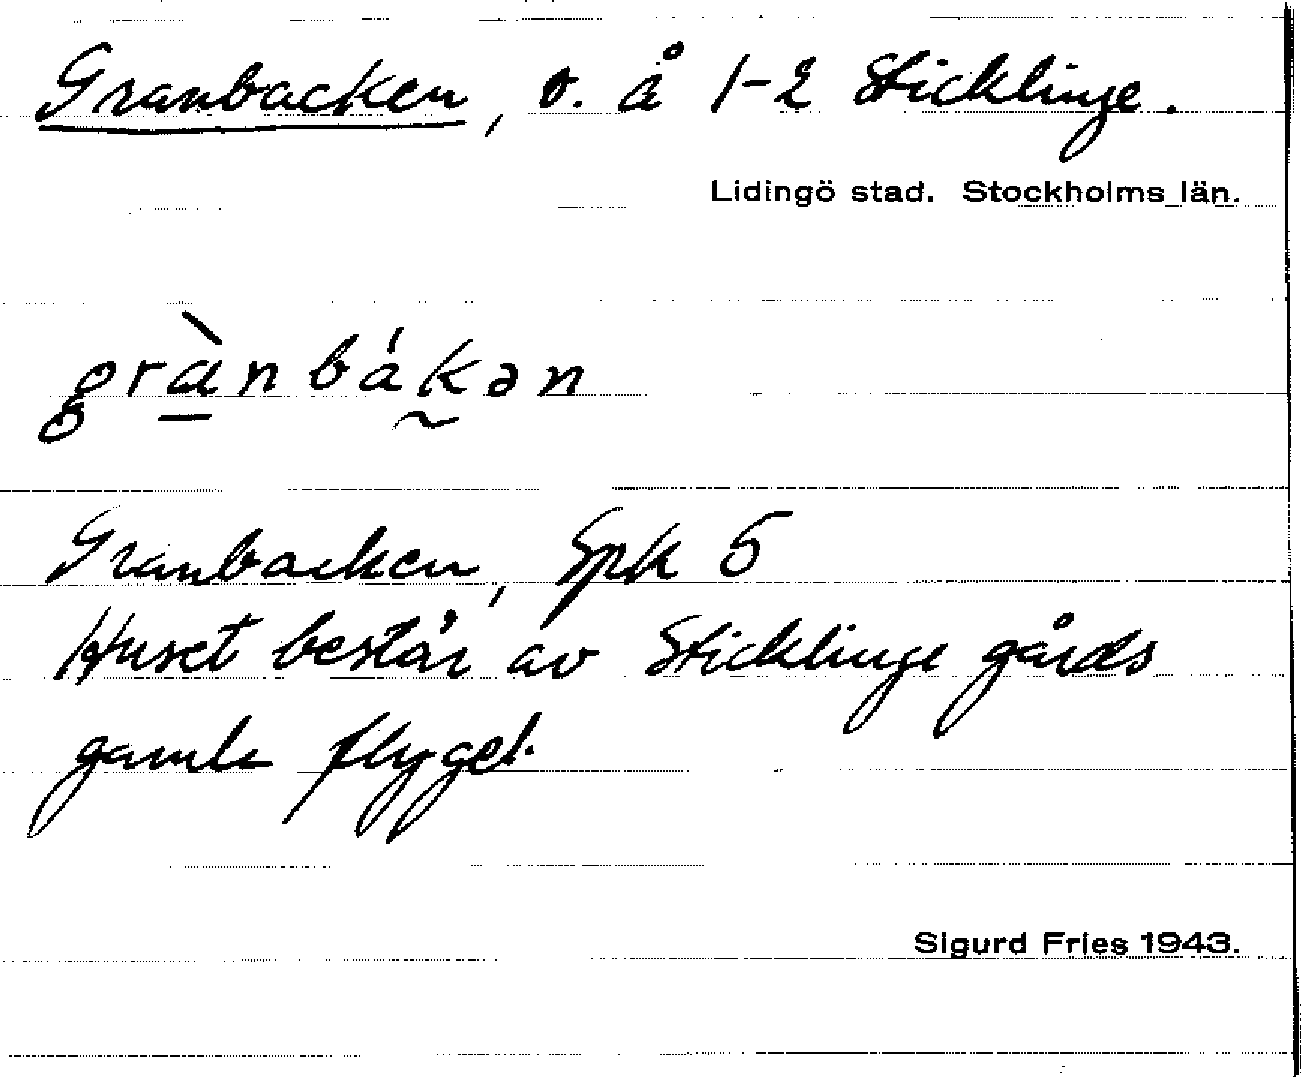 Granbacken, v. å 1-2 Sticklinge.
Lidingö stad. Stockholms län.
grànbákən
Granbacken, Spk 5
Huset består av Sticklinge gårds
gamla flygel.
Sigurd Fries 1943.